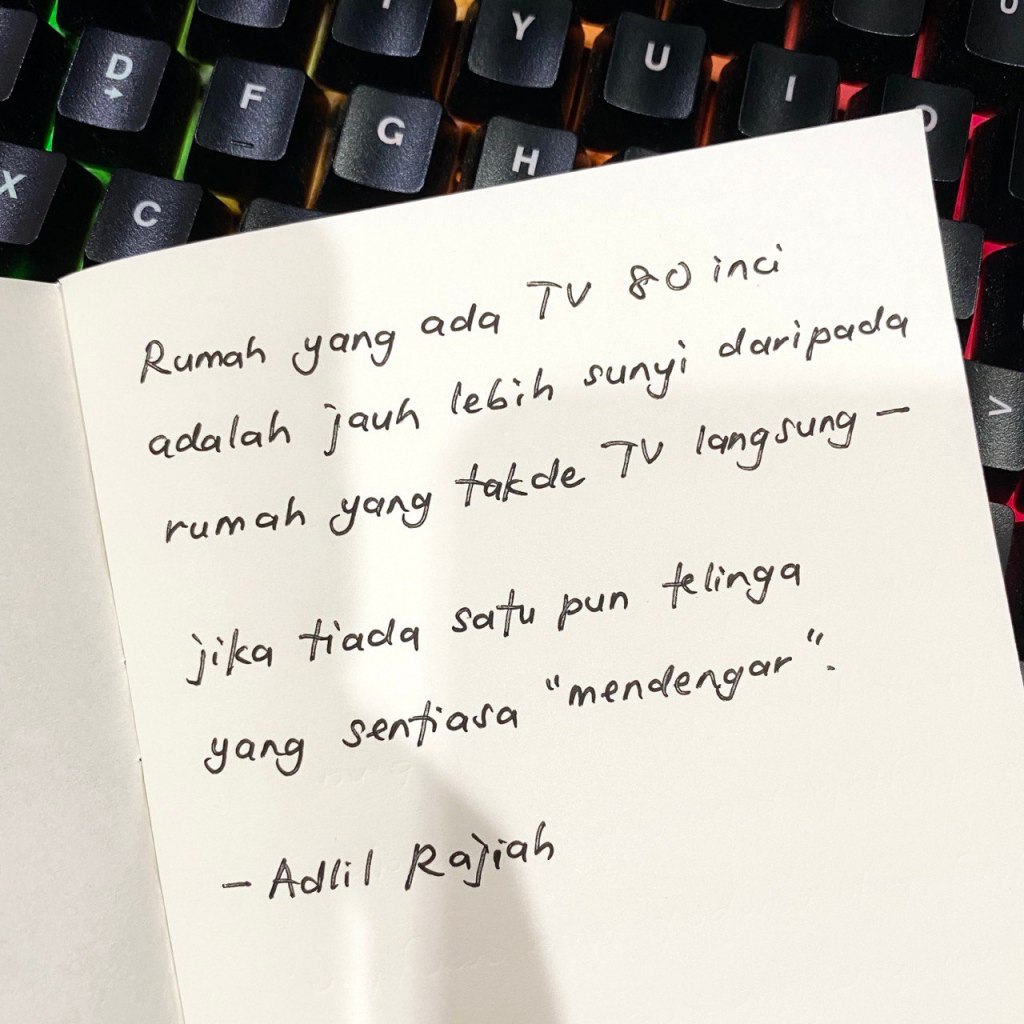 Y
U
I
O
D
F
G
H
X
C
>
Rumah yang ada TV 80 inci
adalah jauh lebih sunyi daripada
rumah yang takde TV langsung –
jika tiada satu pun telinga
yang sentiasa "mendengar".
– Adlil Rajiah